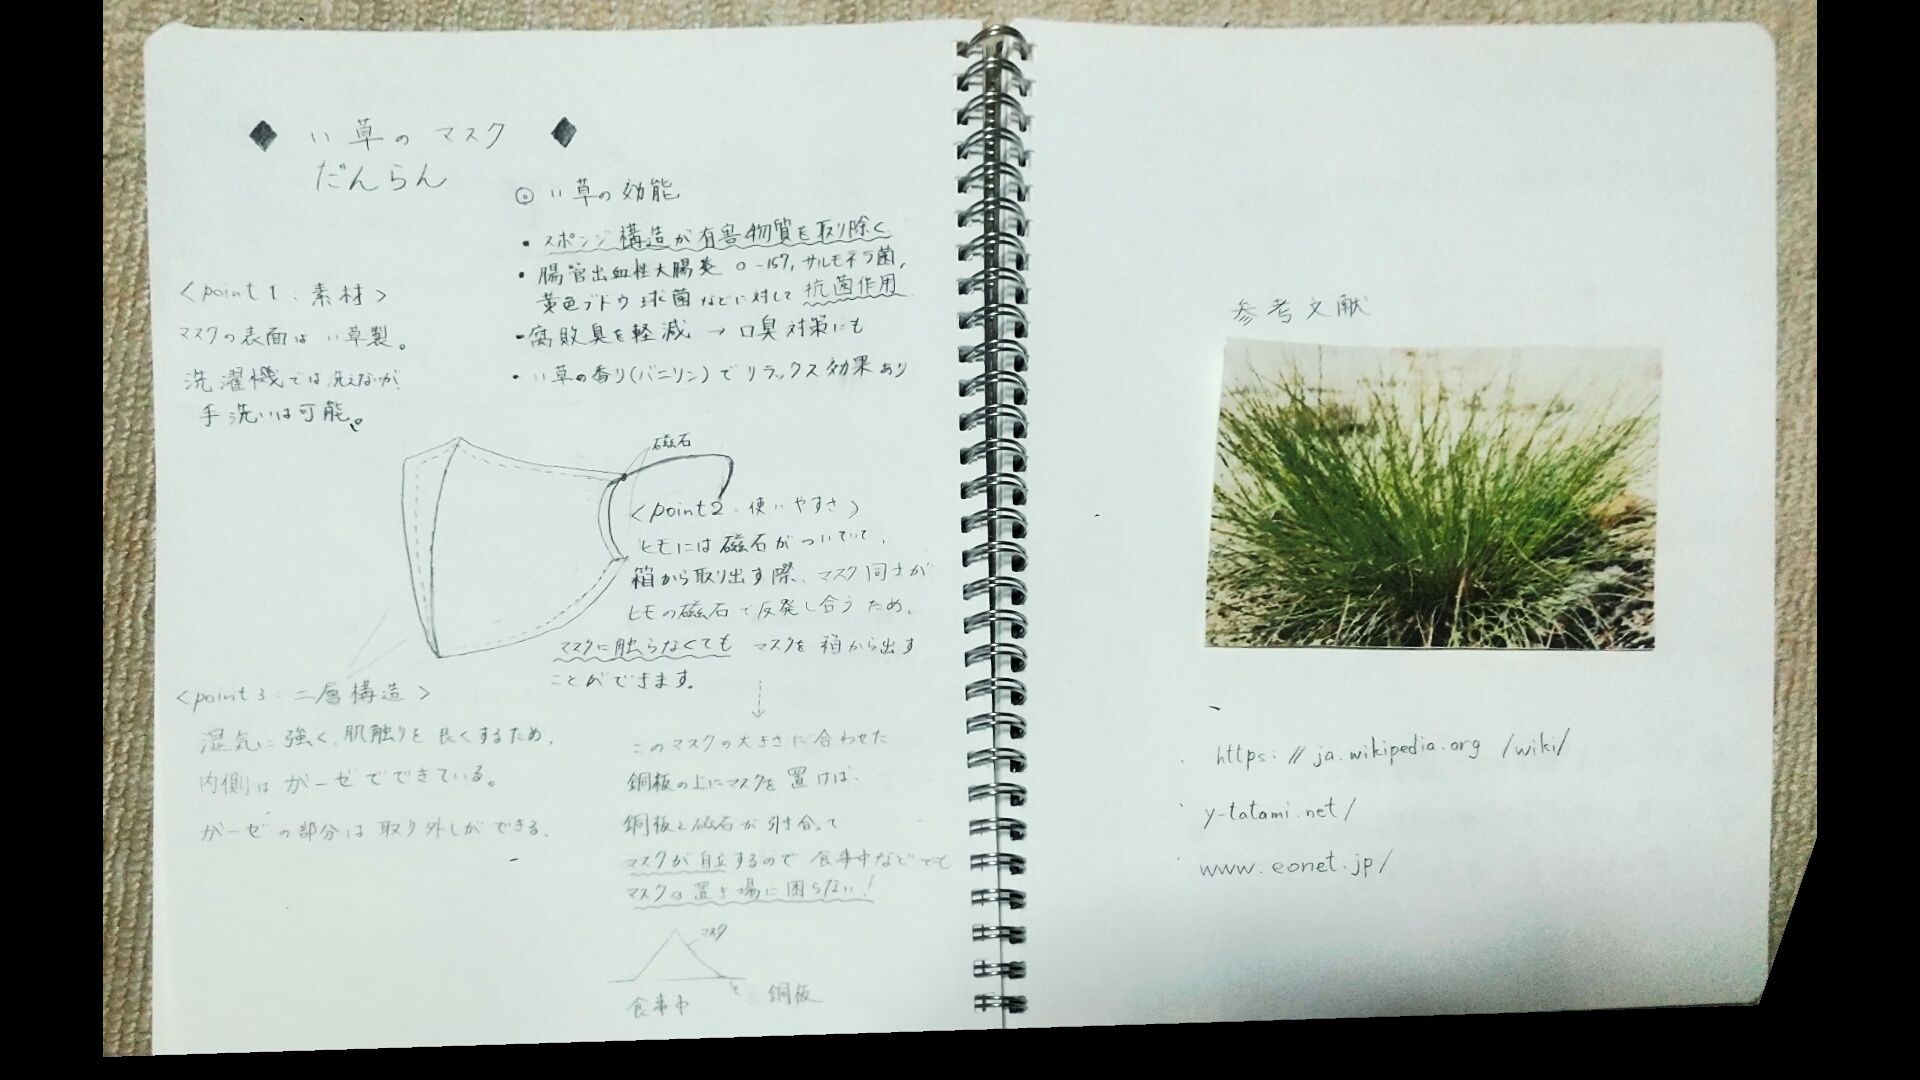 ◆ い草のマスク ◆
だんらん
◎ い草の効能
・スポンジ構造が有害物質を取り除く
・腸管出血性大腸炎 O-157, サルモネラ菌,
黄色ブドウ球菌などに対して抗菌作用
・腐敗臭を軽減 → 口臭対策にも
・い草の香り(バニリン)でリラックス効果あり
<point1:素材>
マスクの表面はい草製。
洗濯機では洗えないが
手洗いは可能。
磁石
<point2:使いやすさ>
ヒモには磁石がついていて、
箱から取り出す際、マスク同士が
ヒモの磁石で反発し合うため、
マスクに触らなくても マスクを箱から出す
ことができます。
↓
このマスクの大きさに合わせた
銅板の上にマスクを置けば、
銅板と磁石が引き合って
マスクが自立するので食事中などでも
マスクの置き場に困らない!
マスク
食事中
銅板
<point3:二層構造>
湿気に強く、肌触りを良くするため、
内側はガーゼでできている。
ガーゼの部分は取り外しができる。
参考文献
https://ja.wikipedia.org/wiki/
y-tatami.net/
www.eonet.jp/